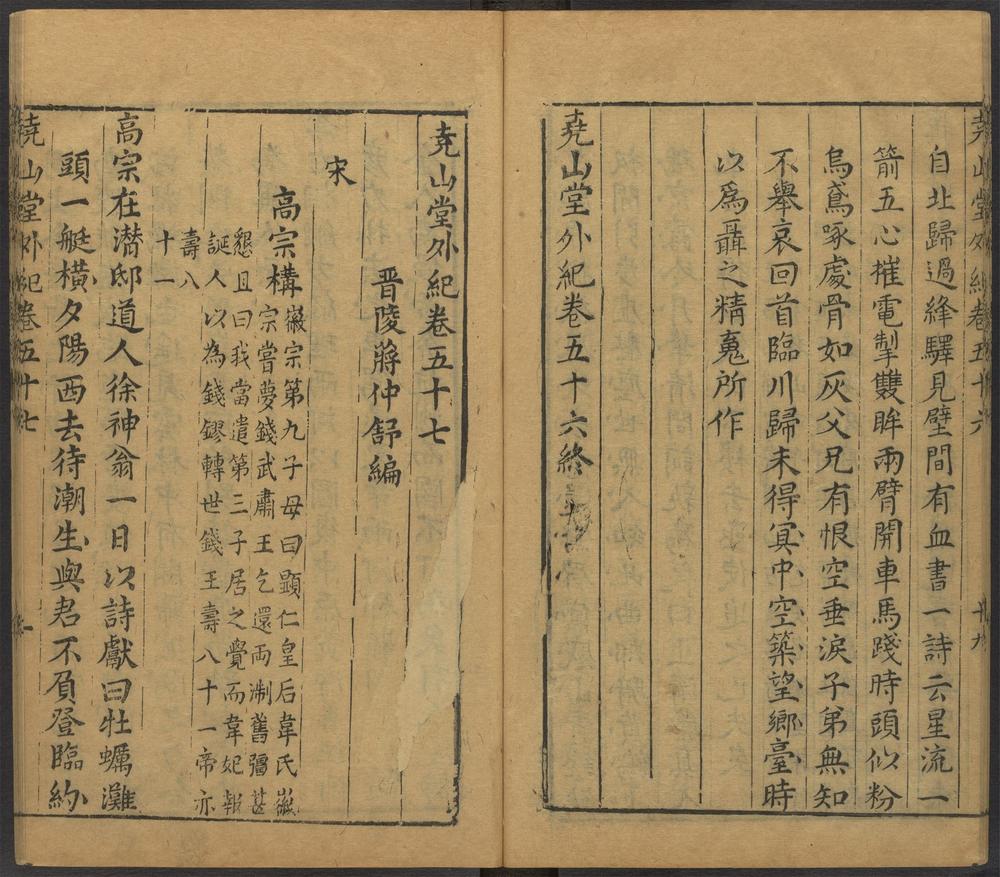 堯山堂外紀卷五十六 十九
自北歸過絳驛見壁間有血書一詩云星流一
箭五心摧電掣雙眸兩臂開車馬踐時頭似粉
烏鳶啄處骨如灰父兄有恨空垂淚子弟無知
不舉哀回首臨川歸未得冥中空築望鄉臺時
以爲聶之精䰟所作
堯山堂外紀卷五十六終
堯山堂外紀卷五十七
晋陵蔣仲舒編
宋
高宗構
徽宗第九子母曰顯仁皇后韋氏徽
宗嘗夢錢武肅王乞還兩淛舊疆甚
懇且曰我當遣第三子居之覺而韋妃報
誕人以為錢鏐轉世錢王壽八十一帝亦
壽八
十一
高宗在潛邸道人徐神翁一日以詩獻曰牡蠣灘
頭一艇橫夕陽西去待潮生與君不負登臨約
堯山堂外紀卷五十七 一